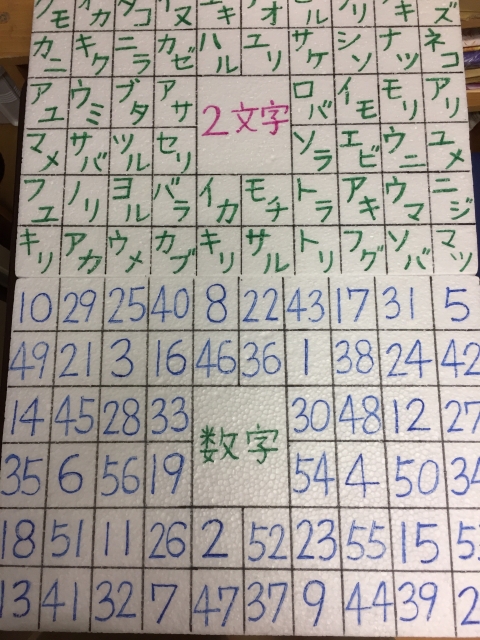 タコ イヌ
カニ キク ニラ カゼ ハル ユリ サケ シソ ナツ ネコ
アユ ウミ ブタ アサ ロバ イモ モリ アリ
2文字
マメ サバ ツル セリ ソラ エビ ウニ ユメ
フユ ノリ ヨル バラ イカ モチ トラ アキ ウマ ニジ
キリ アカ ウメ カブ キリ サル トリ フグ ソバ マツ
10 29 25 40 8 22 43 17 31 5
49 21 3 16 46 36 1 38 24 42
14 45 28 33 30 48 12 27
数字
35 6 56 19 54 4 50 34
18 51 11 26 2 52 23 55 15
13 41 32 7 47 37 9 44 39